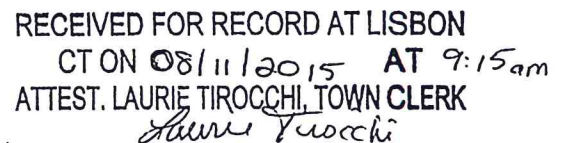 RECEIVED FOR RECORD AT LISBON
CT ON 08/11/2015 AT 9:15am
ATTEST. LAURIE TIROCCHI, TOWN CLERK
Laurie Tirocchi